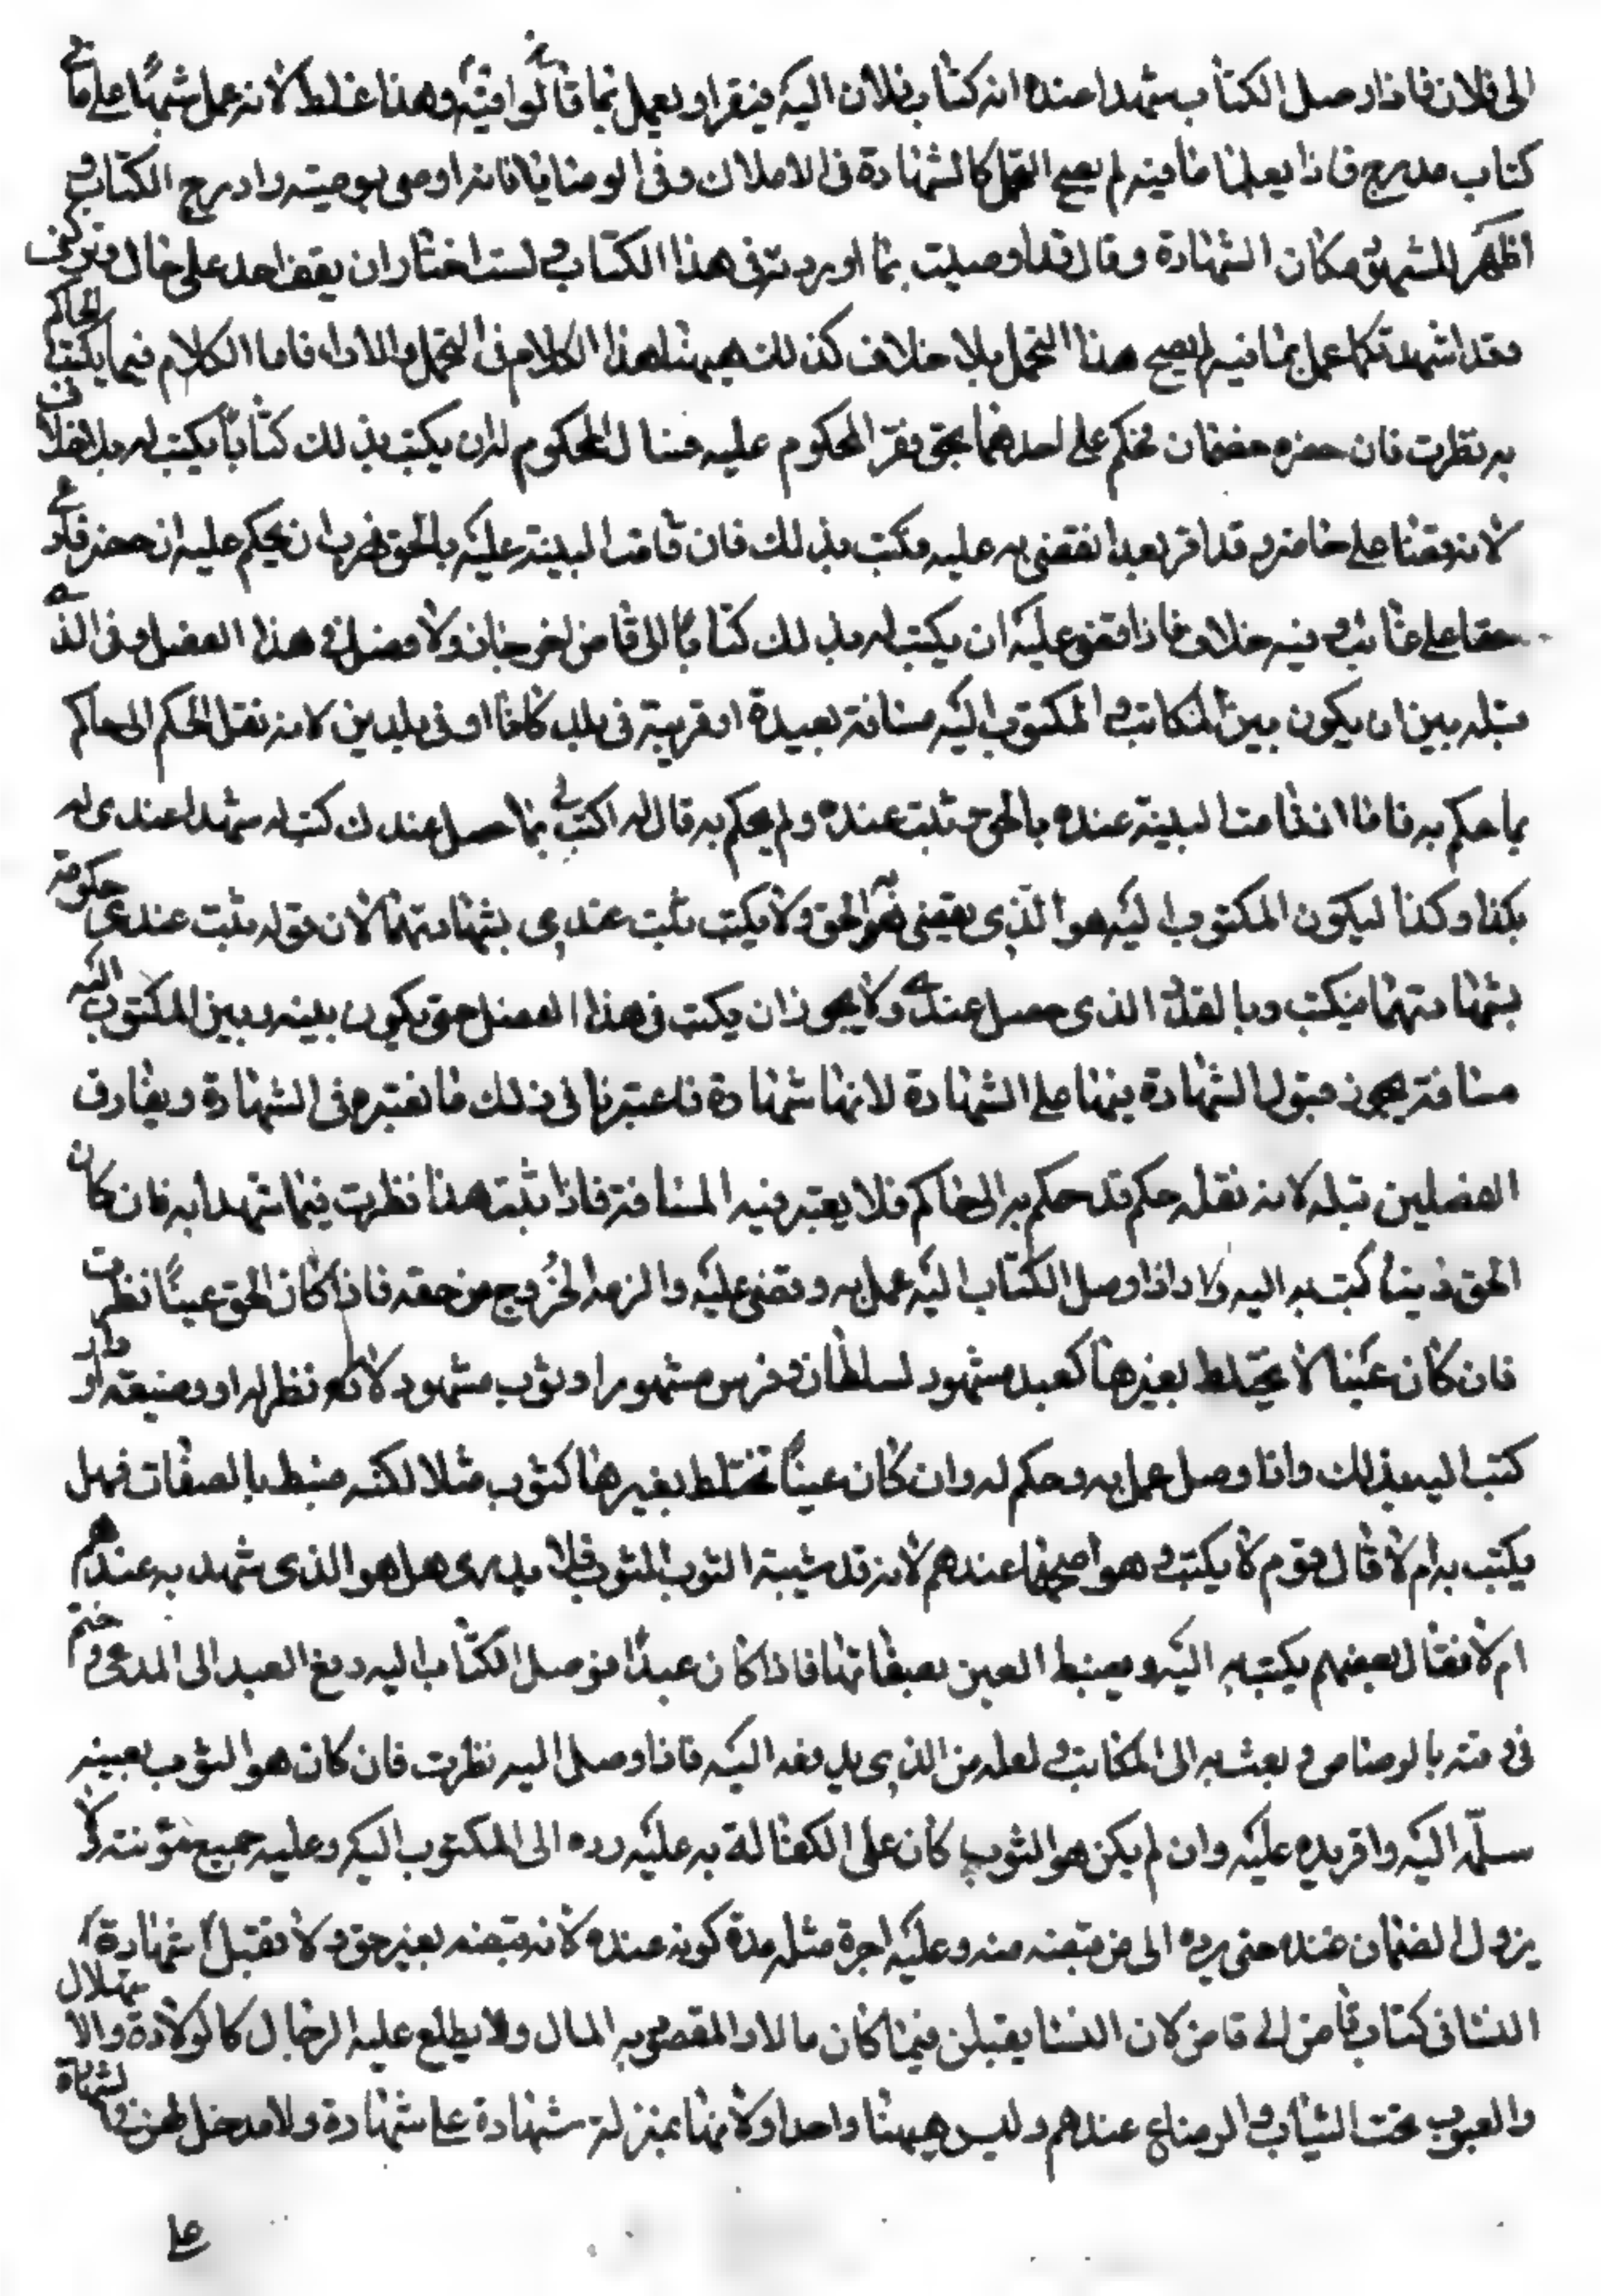 الى فلان فاذا وصل الكتاب شهدا عنده انه كتاب فلان اليه فيقرا ويعمل بما فيه قالوا فيه وهذا غلط لانه عمل شهد بما على ما في
كتاب مدرج فاذا يعلما ما فيه لم يصح التحمل كالشهادة في الاملاك وفي الوصايا فانه اوصى بوصيته وادرج الكتاب و
اظهر للشهود مكان الشهادة وقال قد اوصيت بما اوردته في هذا الكتاب و لست اختار ان يقف احد على حالي وتركتي
وقد اشهدتكما على بما فيه لم يصح هذا التحمل بلا خلاف كذلك هيهنا هذا الكلام في التحمل والاداء فاما الكلام فيما يكتب الحاكم
به نظرت فان حضره خصمان فحكم على احدهما بحق فقر المحكوم عليه فسال المحكوم له ان يكتب بذلك كتابا يكتب له بلا خلاف
لانه قضا على حاضر وقد اقر بعد ان قضى به عليه فكتب بذلك فان قامت البينة عليه بالحق فهرب ان يحكم عليه ان حضر فله في
حقا على غائب و فيه خلاف فاذا قضى عليه ان يكتب له بذلك كتابا الى قاض اخر جاز ولا فصل في هذا الفصل وفى الذي
قبله بين ان يكون بين الكاتب و المكتوب اليه مسافة بعيدة او قريبة في بلد كانا او في بلدين لانه نقل الحكم الى حاكم
بما حكم به فاما اذا قامت البينة عنده بالحق و ثبت عنده ولم يحكم به قال له اكتب لي بما حصل عندك كتب له شهدا عندي له
بكذا وكذا ليكون المكتوب اليه هو الذي يقضي به الحق ولا يكتب ثبت عندي بشهادتهما لان قوله ثبت عندي حكومة
بشهادتهما فيكتب وبالقدر الذي حصل عنده ولا يجوز ان يكتب في هذا الفصل حتى يكون بينه وبين المكتوب اليه
مسافة يجوز قبول الشهادة فيها على الشهادة لانها شهادة فاعتبرنا في ذلك ما نعتبره في الشهادة ويفارق
الفصلين قبله لانه نقل حكم قد حكم به الى حاكم فلا يعتبر فيه المسافة فاذا ثبت هذا نظرت فيما شهدا به فان كان
الحق دينا كتب به اليه و اذا وصل الكتاب اليه عمل به وقضى عليه والزمه الخروج من حقه فاذا كان الحق عينا نظرت
فان كان عينا لا يختلط بغيرها كعبد مشهور لسلطان و فرس مشهور او ثوب مشهور لا نظير له او وضيعة او دار
كتب اليه بذلك واذا وصل عمل به وحكم له وان كان عينا تختلط بغيرها كثوب مثلا لكنه ضبط بالصفات فهل
يكتب به ام لا قال قوم لا يكتب و هو اصحهما عندهم لانه قد شبه الثوب الثوب فلا يدرى هل هو الذي شهد به عندهم
ام لا فقال بعضهم يكتب به اليه ويضبط العين بصفاتها فاذا كان عبدا فوصل الكتاب اليه دفع العبد الى المدعي و ختم
في رقبته بالرصاص و بعث به الى الكاتب و لعله من الذي يدفعه اليه فاذا وصل اليه نظرت فان كان هو الثوب بعينه
سلمه اليه واقر يده عليه وان لم يكن هو الثوب كان على الكفالة به عليه رده الى المكتوب اليه وعليه جميع مؤنته ولا
يزول الضمان عنده حتى يرده الى من قبضه منه وعليه اجرة مثله مدة كونه عنده لانه قبضه بغير حق ولا تقبل شهادة
النسا في كتاب قاض الى قاض لان النسا يقبلن فيما كان مالا او المقصود به المال ولا يطلع عليه الرجال كالولادة والاستهلال
والعيوب تحت الثياب و الرضاع عندهم وليس هيهنا واحدا ولانها بمنزلة شهادة على شهادة ولا مدخل لهن في الشهادة
على